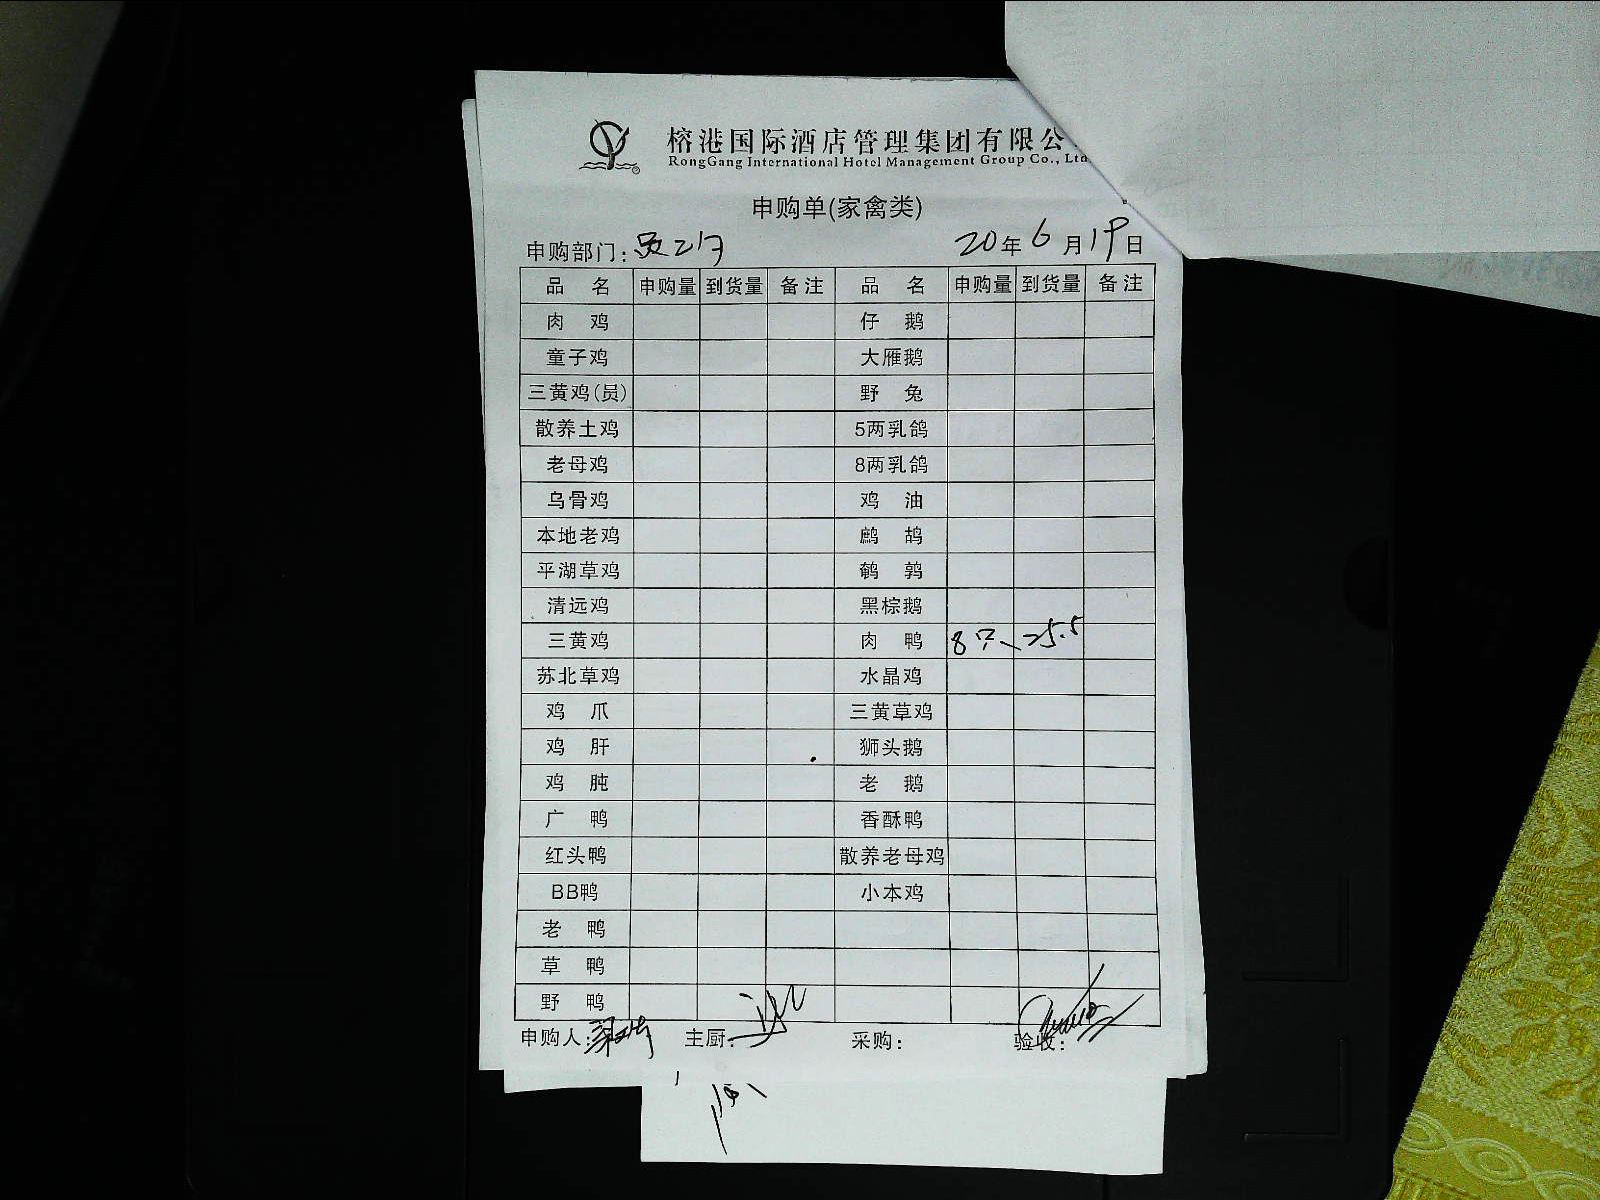 榕港国际酒店管理集团有限公
RongGang International Hotel Management Group Co., Ltd
申购单(家禽类)
申购部门: 20年6月19日
品 名 申购量 到货量 备注 品 名 申购量 到货量 备注
肉 鸡 仔 鹅
童子鸡 大雁鹅
三黄鸡(员) 野 兔
散养土鸡 5两乳鸽
老母鸡 8两乳鸽
乌骨鸡 鸡 油
本地老鸡 鹧 鸪
平湖草鸡 鹌 鹑
清远鸡 黑棕鹅
三黄鸡 肉 鸭 8只 25.5
苏北草鸡 水晶鸡
鸡 爪 三黄草鸡
鸡 肝 狮头鹅
鸡 肫 老 鹅
广 鸭 香酥鸭
红头鸭 散养老母鸡
BB鸭 小本鸡
老 鸭
草 鸭
野 鸭
申购人: 主厨: 采购: 验收: